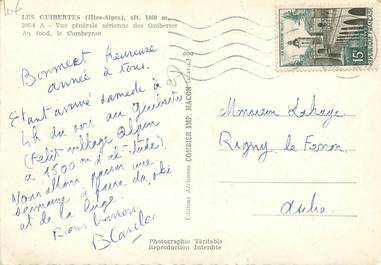 LES GUIBERTES (Htes-Alpes), alt. 1460 m.
2954 A - Vue générale aérienne des Guibertes
Au fond, le Combeynot
Bonne et heureuse
année à tous.
Etant arrivé samedi à
4h du soir au Guibertes
(Petit village Alpin
à 1500 m d'altitude)
Nous allons passer une
semaine à faire du ski
et de la luge.
Bons baisers
Editions Aériennes COMBIER IMP. MACON
Photographie Véritable
Reproduction Interdite
15F
Monsieur
Rigny le Ferron
Aube